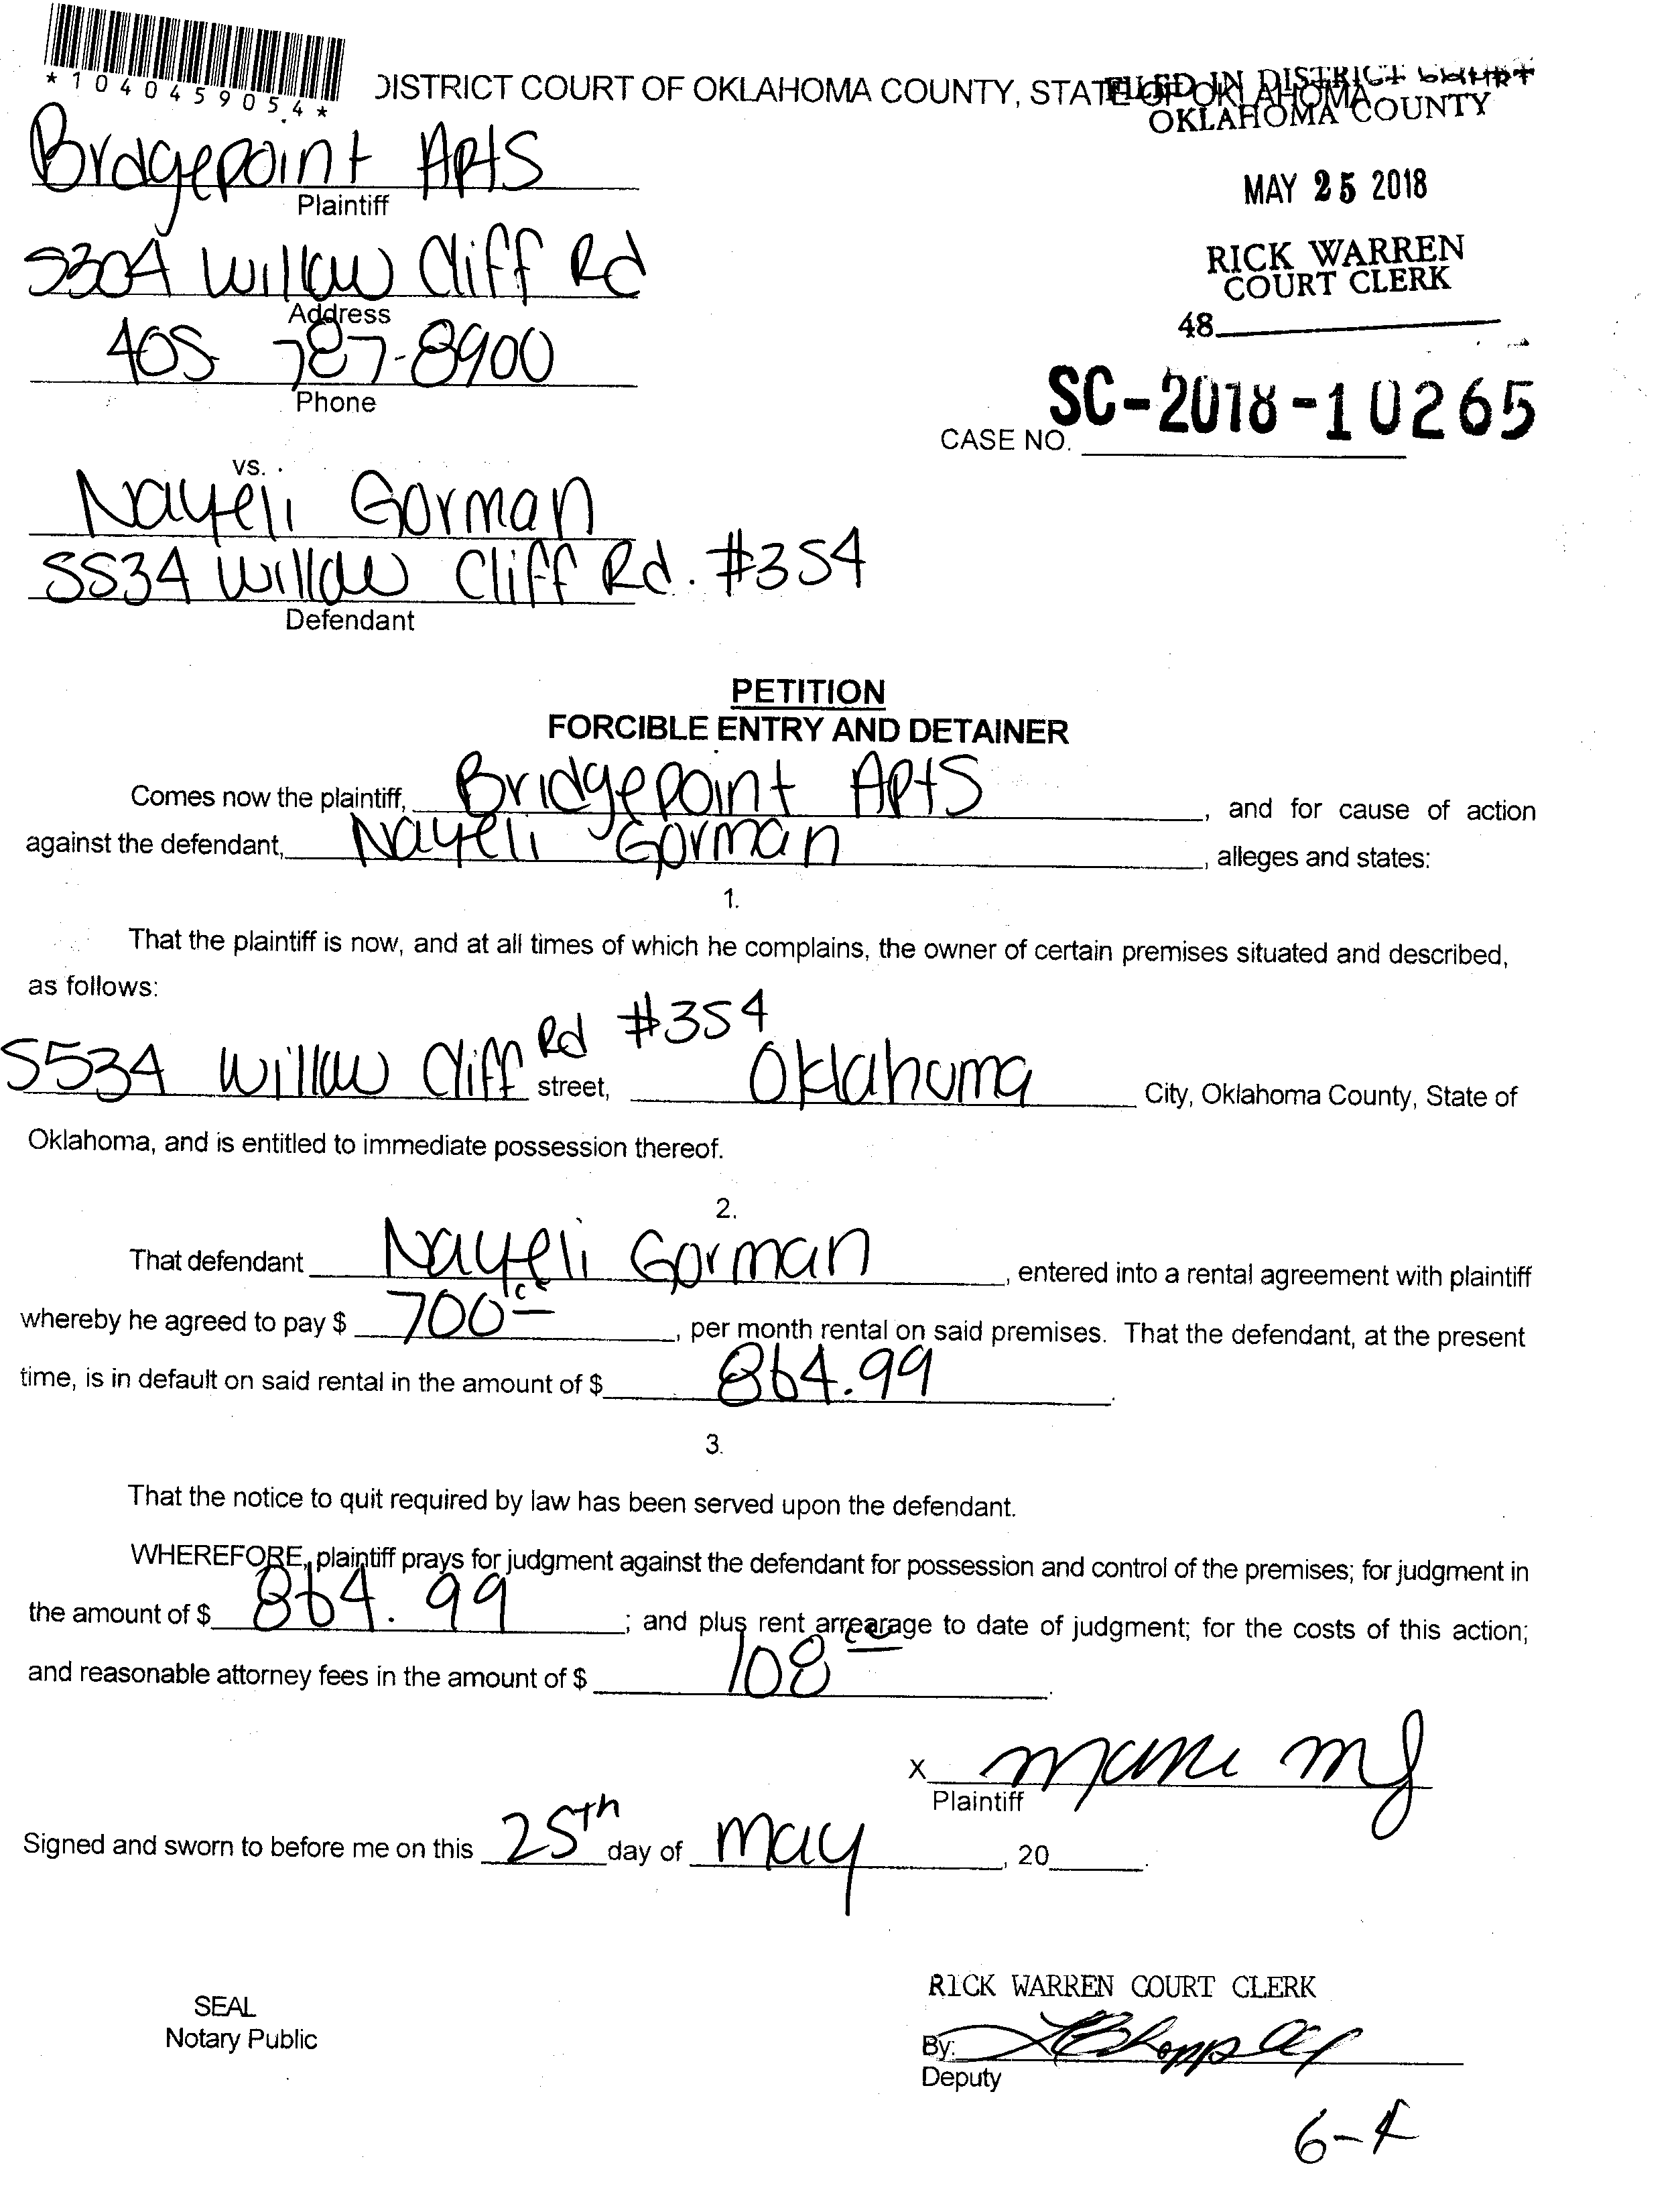 *1040459054*
DISTRICT COURT OF OKLAHOMA COUNTY, STATE OF OKLAHOMA
FILED IN DISTRICT COURT
OKLAHOMA COUNTY
MAY 25 2018
RICK WARREN
COURT CLERK
48
SC-2018-10265
CASE NO.
Brdgepoint Apts
Plaintiff
5304 Willow Cliff Rd
Address
405 787-8900
Phone
vs.
Nayeli Gorman
5534 Willow Cliff Rd. #354
Defendant
PETITION
FORCIBLE ENTRY AND DETAINER
Comes now the plaintiff, Bridgepoint Apts, and for cause of action
against the defendant, Nayeli Gorman, alleges and states:
1.
That the plaintiff is now, and at all times of which he complains, the owner of certain premises situated and described,
as follows:
5534 Willow Cliff Rd #354 street, Oklahoma City, Oklahoma County, State of
Oklahoma, and is entitled to immediate possession thereof.
2.
That defendant Nayeli Gorman, entered into a rental agreement with plaintiff
whereby he agreed to pay $ 700, per month rental on said premises. That the defendant, at the present
time, is in default on said rental in the amount of $ 864.99.
3.
That the notice to quit required by law has been served upon the defendant.
WHEREFORE, plaintiff prays for judgment against the defendant for possession and control of the premises; for judgment in
the amount of $ 864.99; and plus rent arrearage to date of judgment; for the costs of this action;
and reasonable attorney fees in the amount of $ 108.
X
Plaintiff
Signed and sworn to before me on this 25th day of May, 20.
SEAL
Notary Public
RICK WARREN COURT CLERK
By:
Deputy
6-4